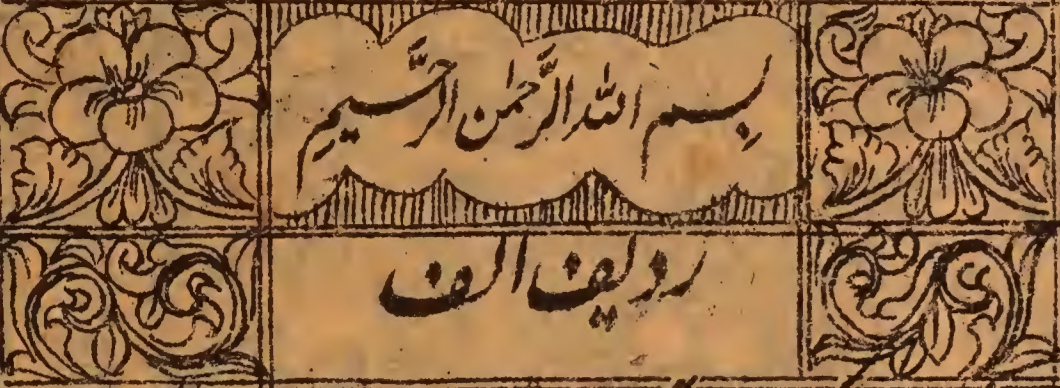 بِسمِ اللہِ الرَّحمٰنِ الرَّحِیمِ
ردیف الف